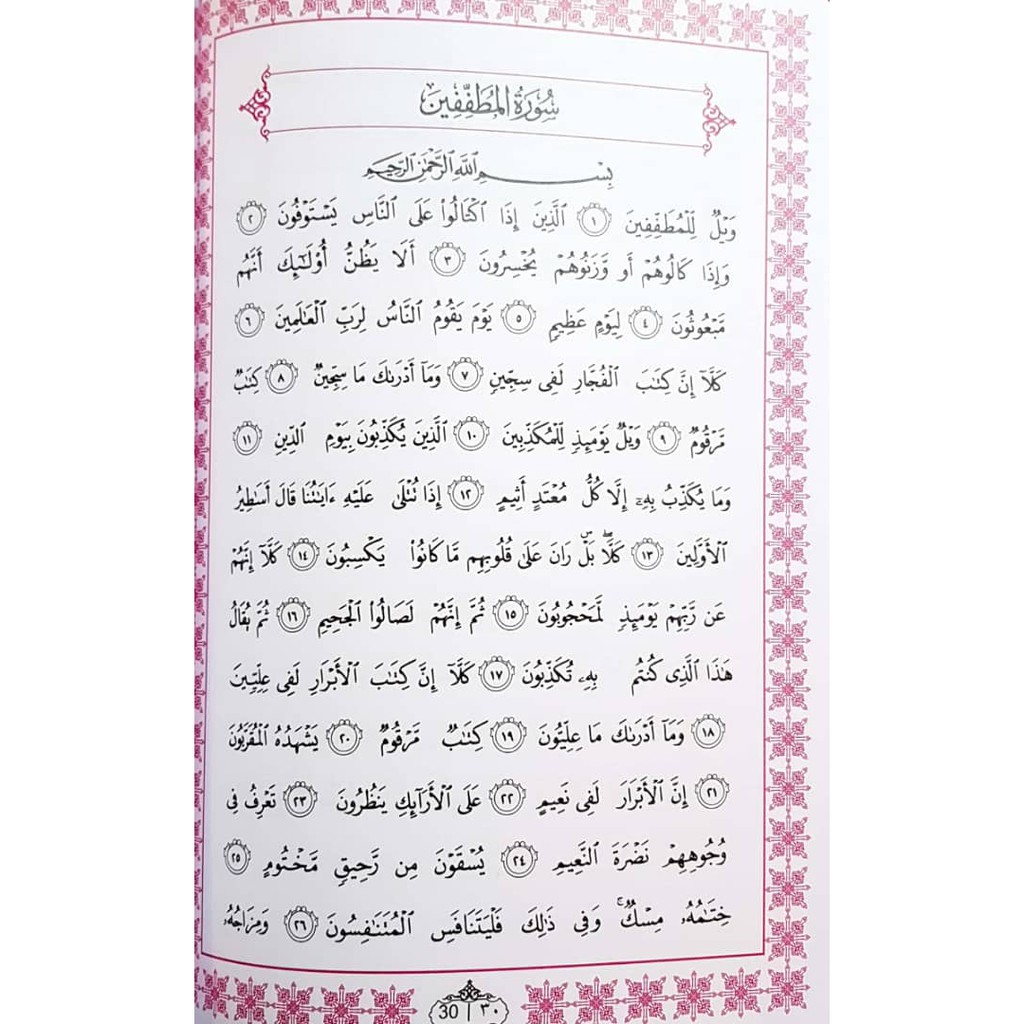 سُورَةُ الْمُطَفِّفِينَ
بِسْمِ اللَّهِ الرَّحْمَٰنِ الرَّحِيمِ
وَيْلٌ لِّلْمُطَفِّفِينَ ١ الَّذِينَ إِذَا اكْتَالُوا عَلَى النَّاسِ يَسْتَوْفُونَ ٢
وَإِذَا كَالُوهُمْ أَو وَّزَنُوهُمْ يُخْسِرُونَ ٣ أَلَا يَظُنُّ أُولَٰئِكَ أَنَّهُم
مَّبْعُوثُونَ ٤ لِيَوْمٍ عَظِيمٍ ٥ يَوْمَ يَقُومُ النَّاسُ لِرَبِّ الْعَالَمِينَ ٦
كَلَّا إِنَّ كِتَابَ الْفُجَّارِ لَفِي سِجِّينٍ ٧ وَمَا أَدْرَاكَ مَا سِجِّينٌ ٨ كِتَابٌ
مَّرْقُومٌ ٩ وَيْلٌ يَوْمَئِذٍ لِّلْمُكَذِّبِينَ ١٠ الَّذِينَ يُكَذِّبُونَ بِيَوْمِ الدِّينِ ١١
وَمَا يُكَذِّبُ بِهِ إِلَّا كُلُّ مُعْتَدٍ أَثِيمٍ ١٢ إِذَا تُتْلَىٰ عَلَيْهِ ءَايَاتُنَا قَالَ أَسَاطِيرُ
الْأَوَّلِينَ ١٣ كَلَّا ۖ بَلْ ۜ رَانَ عَلَىٰ قُلُوبِهِم مَّا كَانُوا يَكْسِبُونَ ١٤ كَلَّا إِنَّهُمْ
عَن رَّبِّهِمْ يَوْمَئِذٍ لَّمَحْجُوبُونَ ١٥ ثُمَّ إِنَّهُمْ لَصَالُوا الْجَحِيمِ ١٦ ثُمَّ يُقَالُ
هَٰذَا الَّذِي كُنتُم بِهِ تُكَذِّبُونَ ١٧ كَلَّا إِنَّ كِتَابَ الْأَبْرَارِ لَفِي عِلِّيِّينَ
١٨ وَمَا أَدْرَاكَ مَا عِلِّيُّونَ ١٩ كِتَابٌ مَّرْقُومٌ ٢٠ يَشْهَدُهُ الْمُقَرَّبُونَ
٢١ إِنَّ الْأَبْرَارَ لَفِي نَعِيمٍ ٢٢ عَلَى الْأَرَائِكِ يَنظُرُونَ ٢٣ تَعْرِفُ فِي
وُجُوهِهِمْ نَضْرَةَ النَّعِيمِ ٢٤ يُسْقَوْنَ مِن رَّحِيقٍ مَّخْتُومٍ ٢٥
خِتَامُهُ مِسْكٌ ۚ وَفِي ذَٰلِكَ فَلْيَتَنَافَسِ الْمُتَنَافِسُونَ ٢٦ وَمِزَاجُهُ
30 | ٣٠